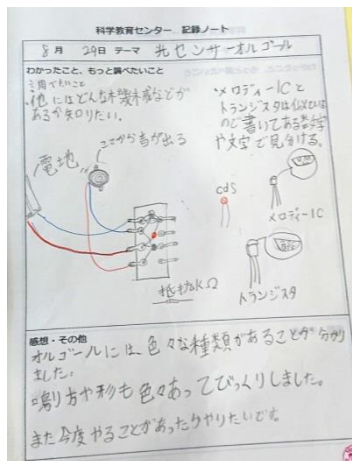 科学教育センター 記録ノート
8月 29日 テーマ 光センサーオルゴール
わかったこと、もっと調べたいこと
調べたいこと
・他にはどんな機械などが
あるか知りたい。
・メロディーICと
トランジスタは似ている
ので書いてある数字
や文字で見分ける。
電池
ここから音が出る
cds
メロディーIC
トランジスタ
抵抗KΩ
感想・その他
オルゴールには、色々な種類があることが分かり
ました。
鳴り方や形も色々あってびっくりしました。
また今度やることがあったらやりたいです。